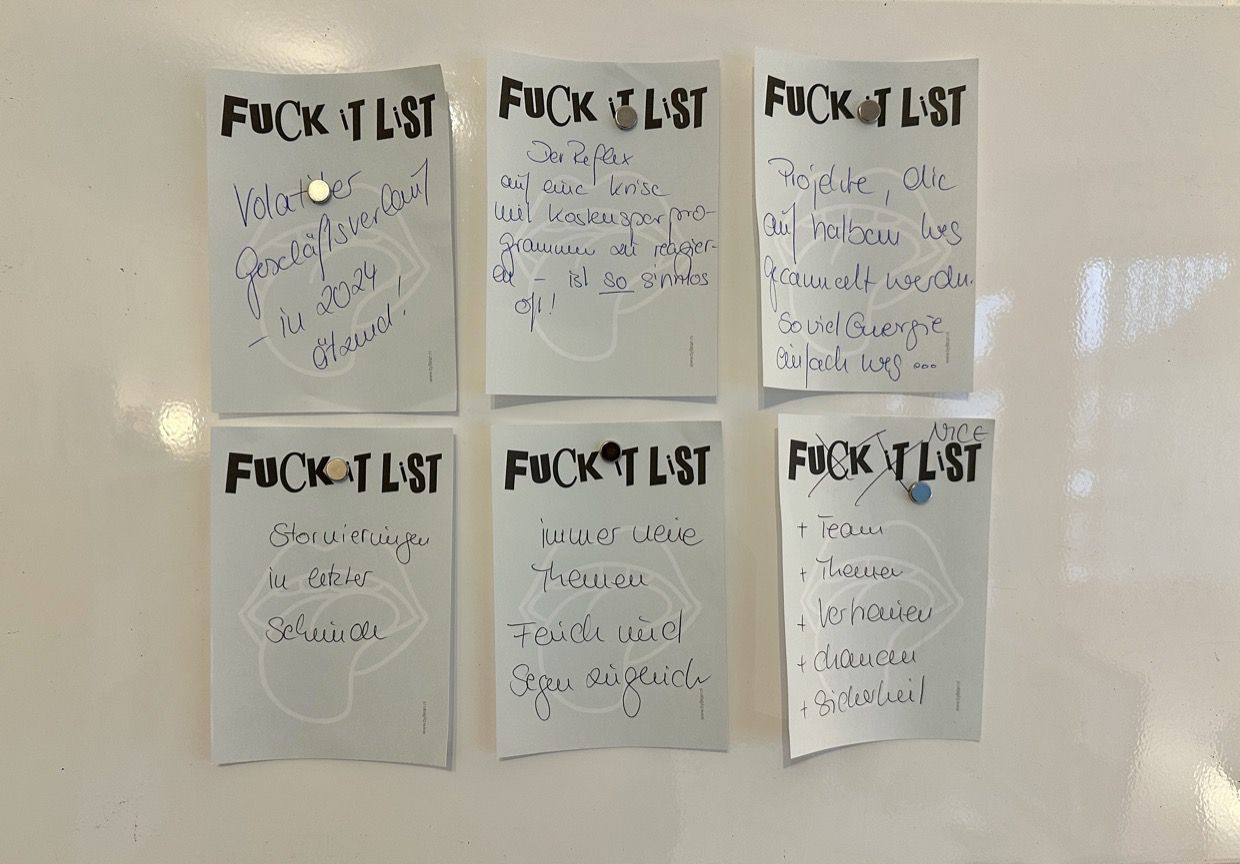 FUCK iT LiST
Volatiler
Geschäftsverlauf
- in 2024
ätzend!
FUCK iT LiST
Der Reflex
auf eine Krise
mit Kostensparpro-
grammen zu reagier-
en - ist so sinnlos
oft!
FUCK iT LiST
Projekte, die
auf halbem Weg
gecancelt werden.
So viel Energie
einfach weg ...
FUCK iT LiST
Stornierungen
in letzter
FUCK iT LiST
immer neue
Themen
Fluch und
Segen zugleich
NICE
FUCK iT LiST
+ Team
+ Themen
+ Vertrauen
+ Chancen
+ Sicherheit